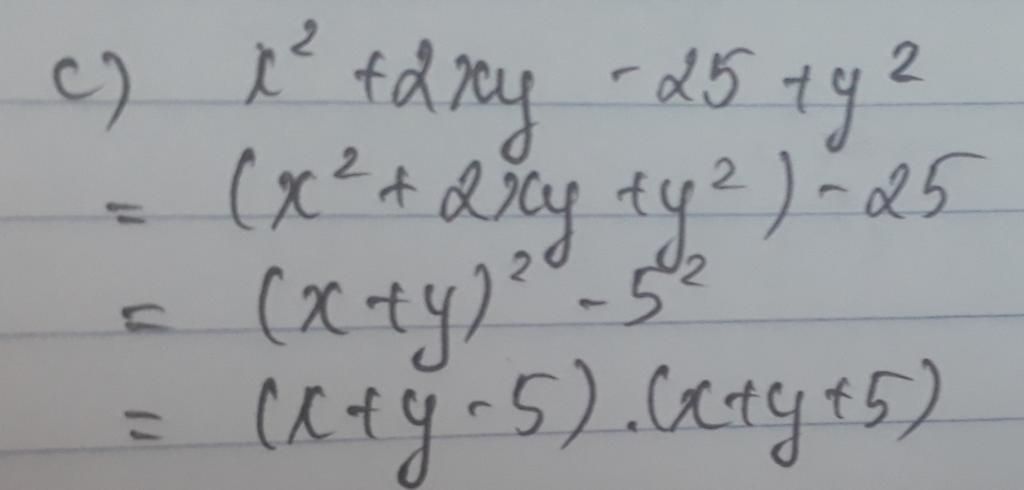 c) x² + 2xy - 25 + y²
= (x² + 2xy + y²) - 25
= (x + y)² - 5²
= (x + y - 5) . (x + y + 5)